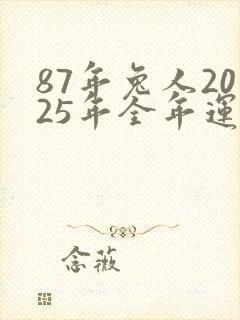 87年兔人20
25年全年運
念薇